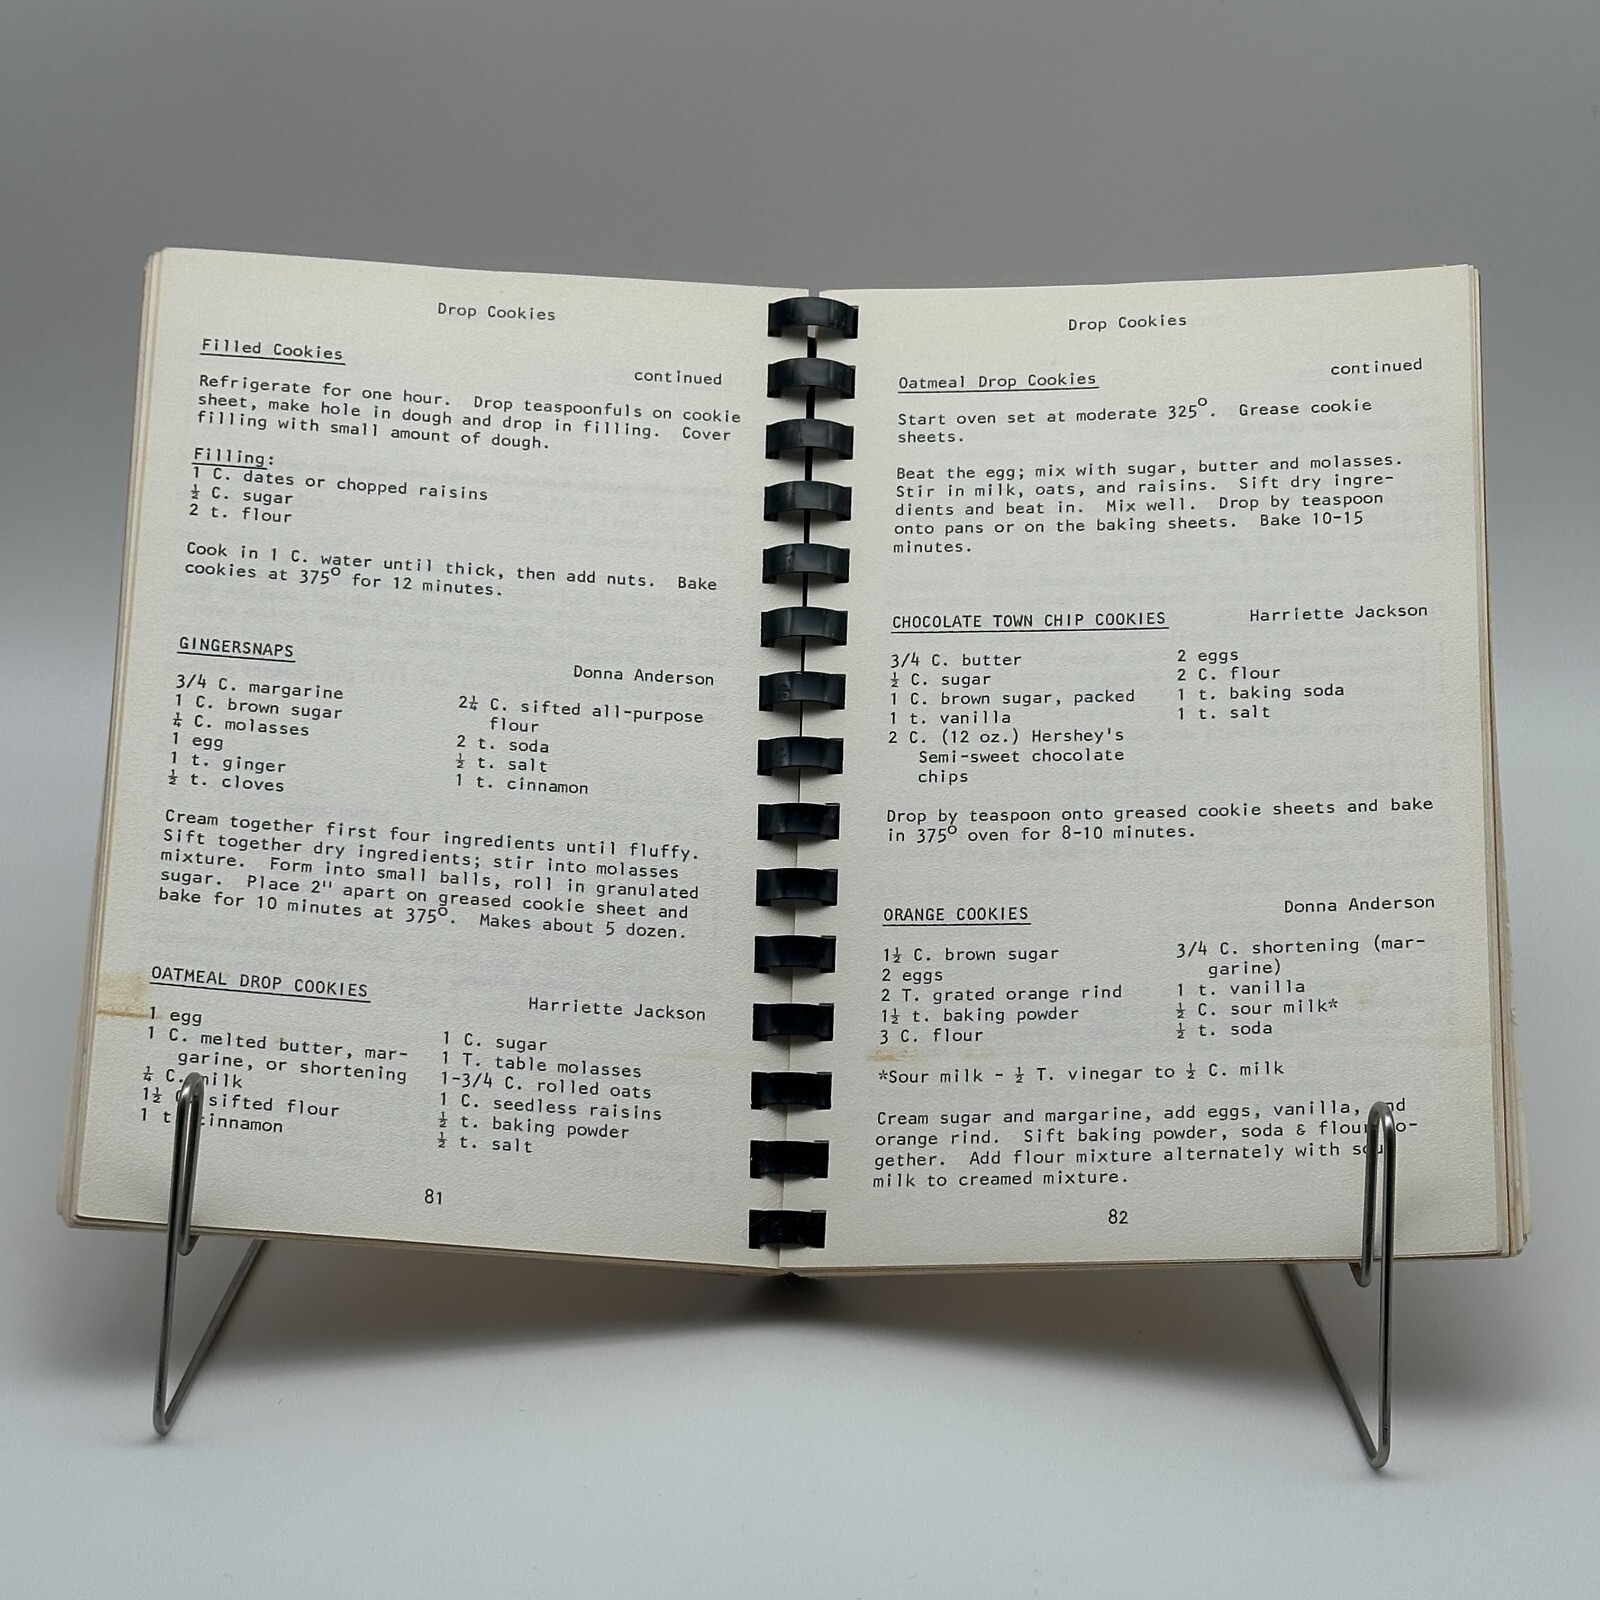 Drop Cookies
Filled Cookies
continued
Refrigerate for one hour. Drop teaspoonfuls on cookie
sheet, make hole in dough and drop in filling. Cover
filling with small amount of dough.
Filling:
1 C. dates or chopped raisins
½ C. sugar
2 t. flour
Cook in 1 C. water until thick, then add nuts. Bake
cookies at 375° for 12 minutes.
GINGERSNAPS
Donna Anderson
3/4 C. margarine
1 C. brown sugar
¼ C. molasses
1 egg
1 t. ginger
½ t. cloves
2¼ C. sifted all-purpose
flour
2 t. soda
½ t. salt
1 t. cinnamon
Cream together first four ingredients until fluffy.
Sift together dry ingredients; stir into molasses
mixture. Form into small balls, roll in granulated
sugar. Place 2" apart on greased cookie sheet and
bake for 10 minutes at 375°. Makes about 5 dozen.
OATMEAL DROP COOKIES
Harriette Jackson
1 egg
1 C. melted butter, mar-
garine, or shortening
¼ C. milk
1½ C. sifted flour
1 t. cinnamon
1 C. sugar
1 T. table molasses
1-3/4 C. rolled oats
1 C. seedless raisins
½ t. baking powder
½ t. salt
81
Drop Cookies
continued
Oatmeal Drop Cookies
Start oven set at moderate 325°. Grease cookie
sheets.
Beat the egg; mix with sugar, butter and molasses.
Stir in milk, oats, and raisins. Sift dry ingre-
dients and beat in. Mix well. Drop by teaspoon
onto pans or on the baking sheets. Bake 10-15
minutes.
CHOCOLATE TOWN CHIP COOKIES
Harriette Jackson
3/4 C. butter
½ C. sugar
1 C. brown sugar, packed
1 t. vanilla
2 C. (12 oz.) Hershey's
Semi-sweet chocolate
chips
2 eggs
2 C. flour
1 t. baking soda
1 t. salt
Drop by teaspoon onto greased cookie sheets and bake
in 375° oven for 8-10 minutes.
ORANGE COOKIES
Donna Anderson
1½ C. brown sugar
2 eggs
2 T. grated orange rind
1½ t. baking powder
3 C. flour
3/4 C. shortening (mar-
garine)
1 t. vanilla
½ C. sour milk*
½ t. soda
*Sour milk - ½ T. vinegar to ½ C. milk
Cream sugar and margarine, add eggs, vanilla, and
orange rind. Sift baking powder, soda & flour to-
gether. Add flour mixture alternately with sour
milk to creamed mixture.
82